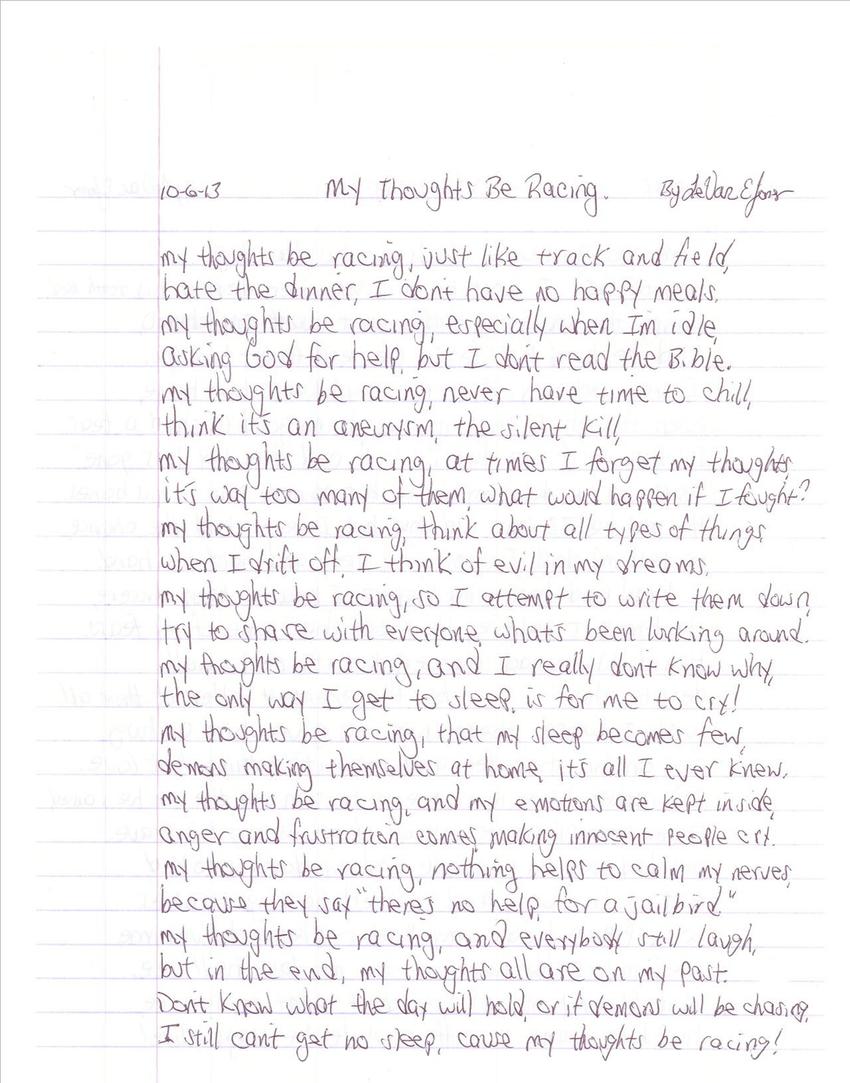 10-6-13 My Thoughts Be Racing. By
my thoughts be racing, just like track and field,
hate the dinner, I don't have no happy meals.
my thoughts be racing, especially when I'm idle,
asking God for help, but I don't read the Bible.
my thoughts be racing, never have time to chill,
think it's an aneurysm, the silent kill,
my thoughts be racing, at times I forget my thoughts,
it's way too many of them, what would happen if I fought?
my thoughts be racing, think about all types of things
when I drift off, I think of evil in my dreams.
my thoughts be racing, so I attempt to write them down,
try to share with everyone, what's been lurking around.
my thoughts be racing, and I really don't know why,
the only way I get to sleep, is for me to cry!
my thoughts be racing, that my sleep becomes few,
demons making themselves at home, it's all I ever knew.
my thoughts be racing, and my emotions are kept inside,
anger and frustration comes, making innocent people cry.
my thoughts be racing, nothing helps to calm my nerves,
because they say "there's no help, for a jailbird."
my thoughts be racing, and everybody still laugh,
but in the end, my thoughts all are on my past.
Don't know what the day will hold, or if demons will be chasing,
I still can't get no sleep, cause my thoughts be racing!